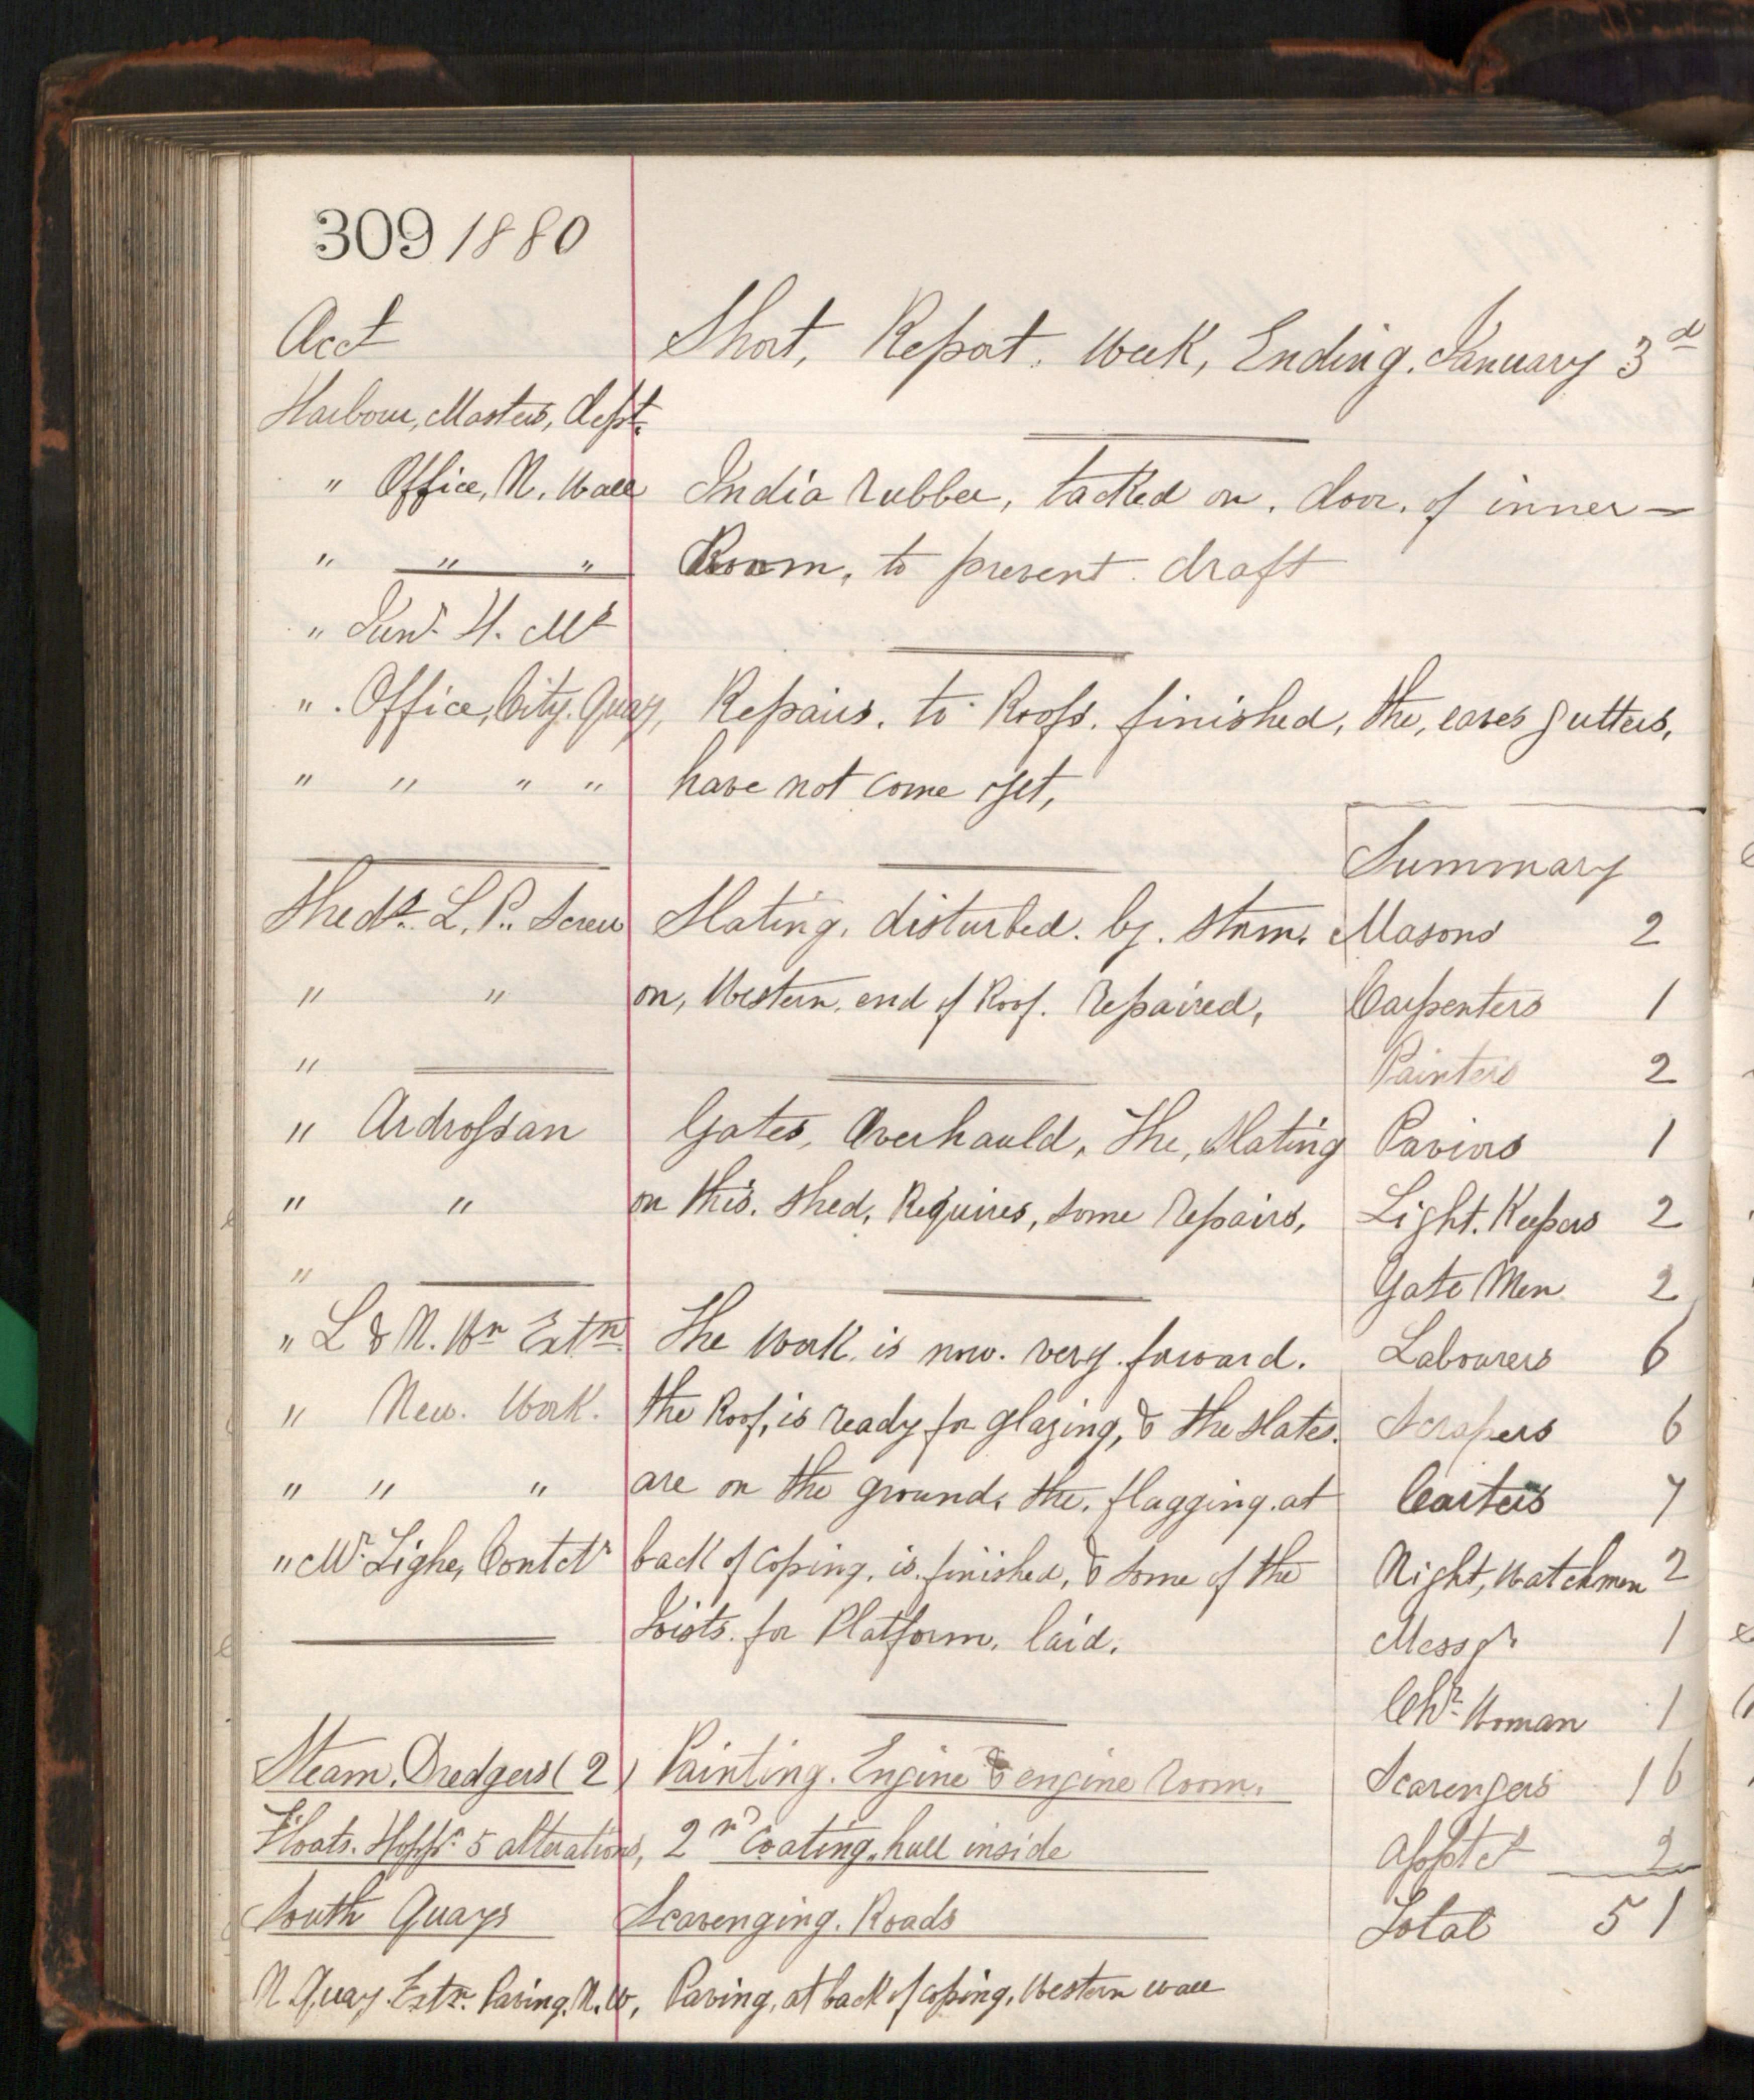 309 1880
Acct Short, Report. Week, Ending. January 3d
Harbour, Masters, Dept.
" Office, N. Wall India rubber, tacked on. door. of inner –
" " " Room, to prevent. draft
" Supt. H. Mr
" . Office, City. Quay, Repairs. to Roofs. finished, the, eaves gutters,
" " " " have not come yet,
Summary
Shedg. L. P. Screw Slating, disturbed. by. storm. Masons 2
" " on, Western, end of Roof. repaired, Carpenters 1
" Painters 2
" Ardrossan Gates, Overhauld, The, slating Paviors 1
" " on this. Shed, Requires, some repairs, Light. Keepers 2
" Gate Men 2
" L & N. Wn Extn The work is now. very. forward. Labourers 6
" New. Work. the Roof, is ready for glazing, & the slates. Scrapers 6
" " " are on the ground, the, flagging. at Carters 7
" Mr. Lighe, Contctr back of coping, is. finished, & some of the Night, Watchmen 2
Joists. for Platform, laid. Messgr 1
Chr. Woman 1
Steam. Dredgers (2) Painting. Engine & engine room. Scavengers 16
Floats. Hoppr. 5 alterations, 2nd Coating, hull inside Apptct 2
South Quays Scavenging. Roads Total 51
N. Quay. Extn. Paving. N. W, Paving, at back of coping, Western wall